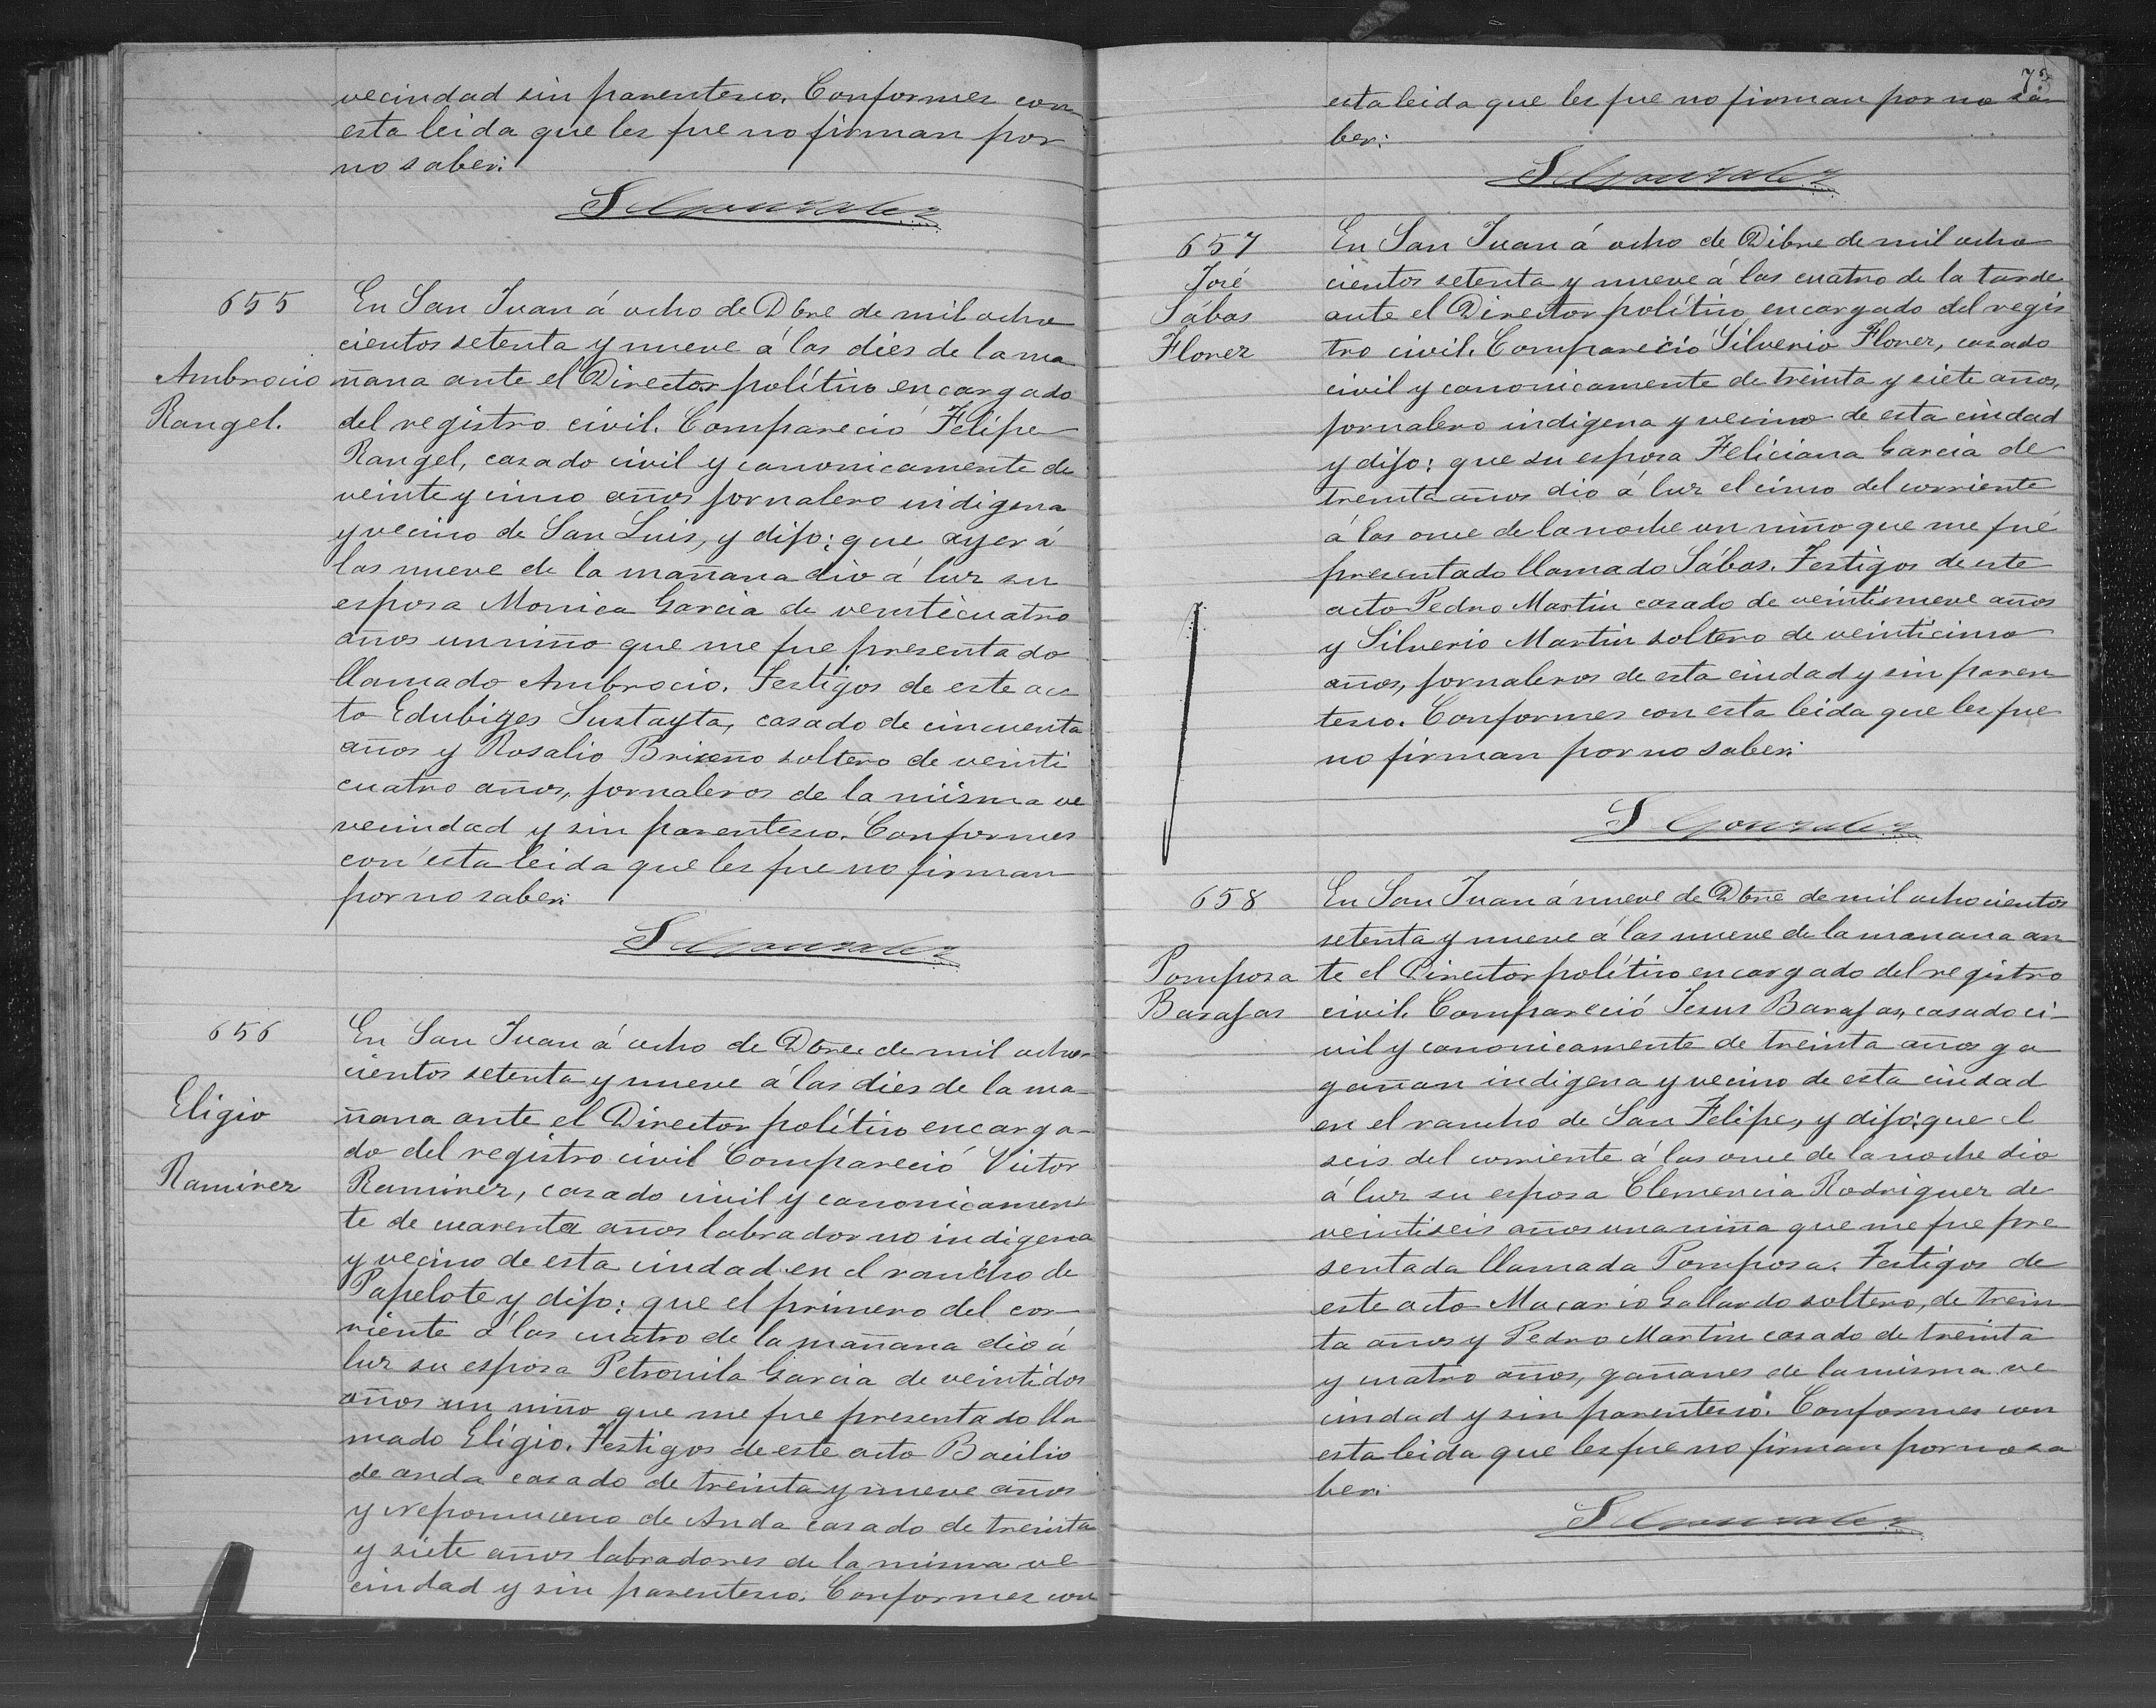 vecindad sin parentesco. Conformes con
esta leida que les fue no firman por
no saber:
S Gonzalez
655
Ambrocio
Rangel.
En San Juan á ocho de Dbre de mil ocho
cientos setenta y nueve á las dies de la ma
ñana ante el Director político encargado
del registro civil. Compareció Felipe
Rangel, casado civil y canonicamente de
veinte y cinco años jornalero indigena
y vecino de San Luis, y dijo: que ayer á
las nueve de la mañana dio á luz su
esposa Monica Garcia de veinticuatro
años un niño que me fue presentado
llamado Ambrocio. Testigos de este ac
to Edubiges Sustayta, casado de cincuenta
años y Rosalio Briseño soltero de veinti
cuatro años, jornaleros de la misma ve
vecindad y sin parentesco. Conformes
con esta leida que les fue no firman
por no saber:
S Gonzalez
656
Eligio
Ramirez
En San Juan á ocho de Dbre de mil ocho-
cientos setenta y nueve á las dies de la ma-
ñana ante el Director político encarga-
do del registro civil Compareció Victor
Ramirez, casado civil y canonicamen
te de cuarenta años labrador no indigena
y vecino de esta ciudad en el rancho de
Papelote y dijo: que el primero del cor-
riente á las cuatro de la mañana dio á
luz su esposa Petronila Garcia de veintidos
años un niño que me fue presentado lla
mado Eligio. Testigos de este acto Bacilio
de anda casado de treinta y nueve años
y Nepomuceno de Anda casado de treinta
y siete años labradores de la misma ve
cindad y sin parentesco. Conformes con
75
esta leida que les fue no firman por no sa
ber:
S Gonzalez
657
José
Sábas
Florez
En San Juan á ocho de Dibre de mil ocho
cientos setenta y nueve á las cuatro de la tarde
ante el Director político encargado del regis
tro civil. Compareció Silverio Florez, casado
civil y canonicamente de treinta y siete años,
jornalero indigena y vecino de esta ciudad
y dijo: que su esposa Feliciana Garcia de
treinta años dio á luz el cinco del corriente
á las once de la noche un niño que me fué
presentado llamado Sábas. Testigos de este
acto Pedro Martin casado de veintinueve años
y Silverio Martin soltero de veinticinco
años, jornaleros de esta ciudad y sin paren
tesco. Conformes con esta leida que les fue
no firman por no saber:
S Gonzalez
658
Pomposa
Barajas
En San Juan á nueve de Dbre de mil ochocientos
setenta y nueve á las nueve de la manana an
te el Director político encargado del registro
civil. Compareció Jesus Barajas, casado ci-
vil y canonicamente de treinta años ga
gañan indigena y vecino de esta ciudad
en el rancho de San Felipe, y dijo: que el
seis del corriente á las once de la noche dio
á luz su esposa Clemencia Rodriguez de
veintiseis años una niña que me fue pre
sentada llamada Pomposa. Testigos de
este acto Macario Gallardo soltero, de trein
ta años y Pedro Martin casado de treinta
y cuatro años, gañanes de la misma ve
cindad y sin parentesco. Conformes con
esta leida que les fue no firman por no sa
ber:
S Gonzalez